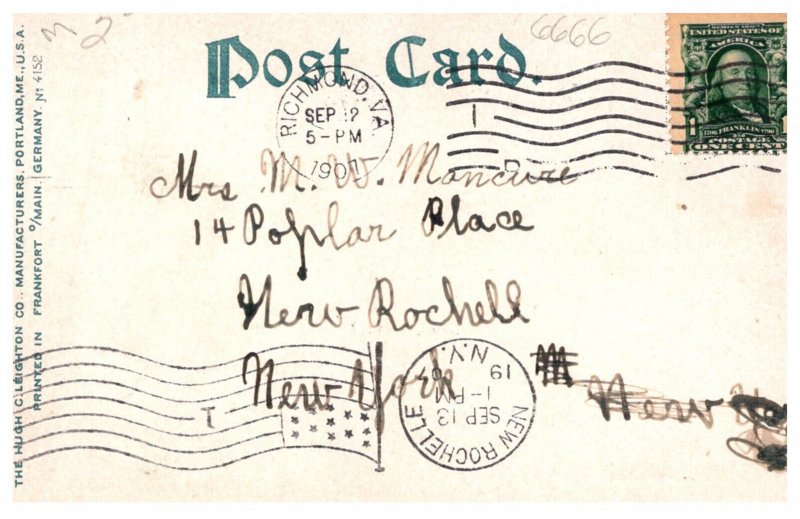 6666
Post Card.
SERIES 1902
UNITED STATES OF
AMERICA
1706 FRANKLIN 1790
1 POSTAGE 1
ONE CENT
RICHMOND, VA.
SEP 12
5-PM
1907
1
Mrs M. W. Moncure
14 Poplar Place
New Rochell
New York
New Yo
T
NEW ROCHELLE
N.Y.
SEP 13
1-PM
19 07
THE HUGH C. LEIGHTON CO., MANUFACTURERS, PORTLAND, ME., U.S.A.
PRINTED IN FRANKFORT o/MAIN, GERMANY. No 4152